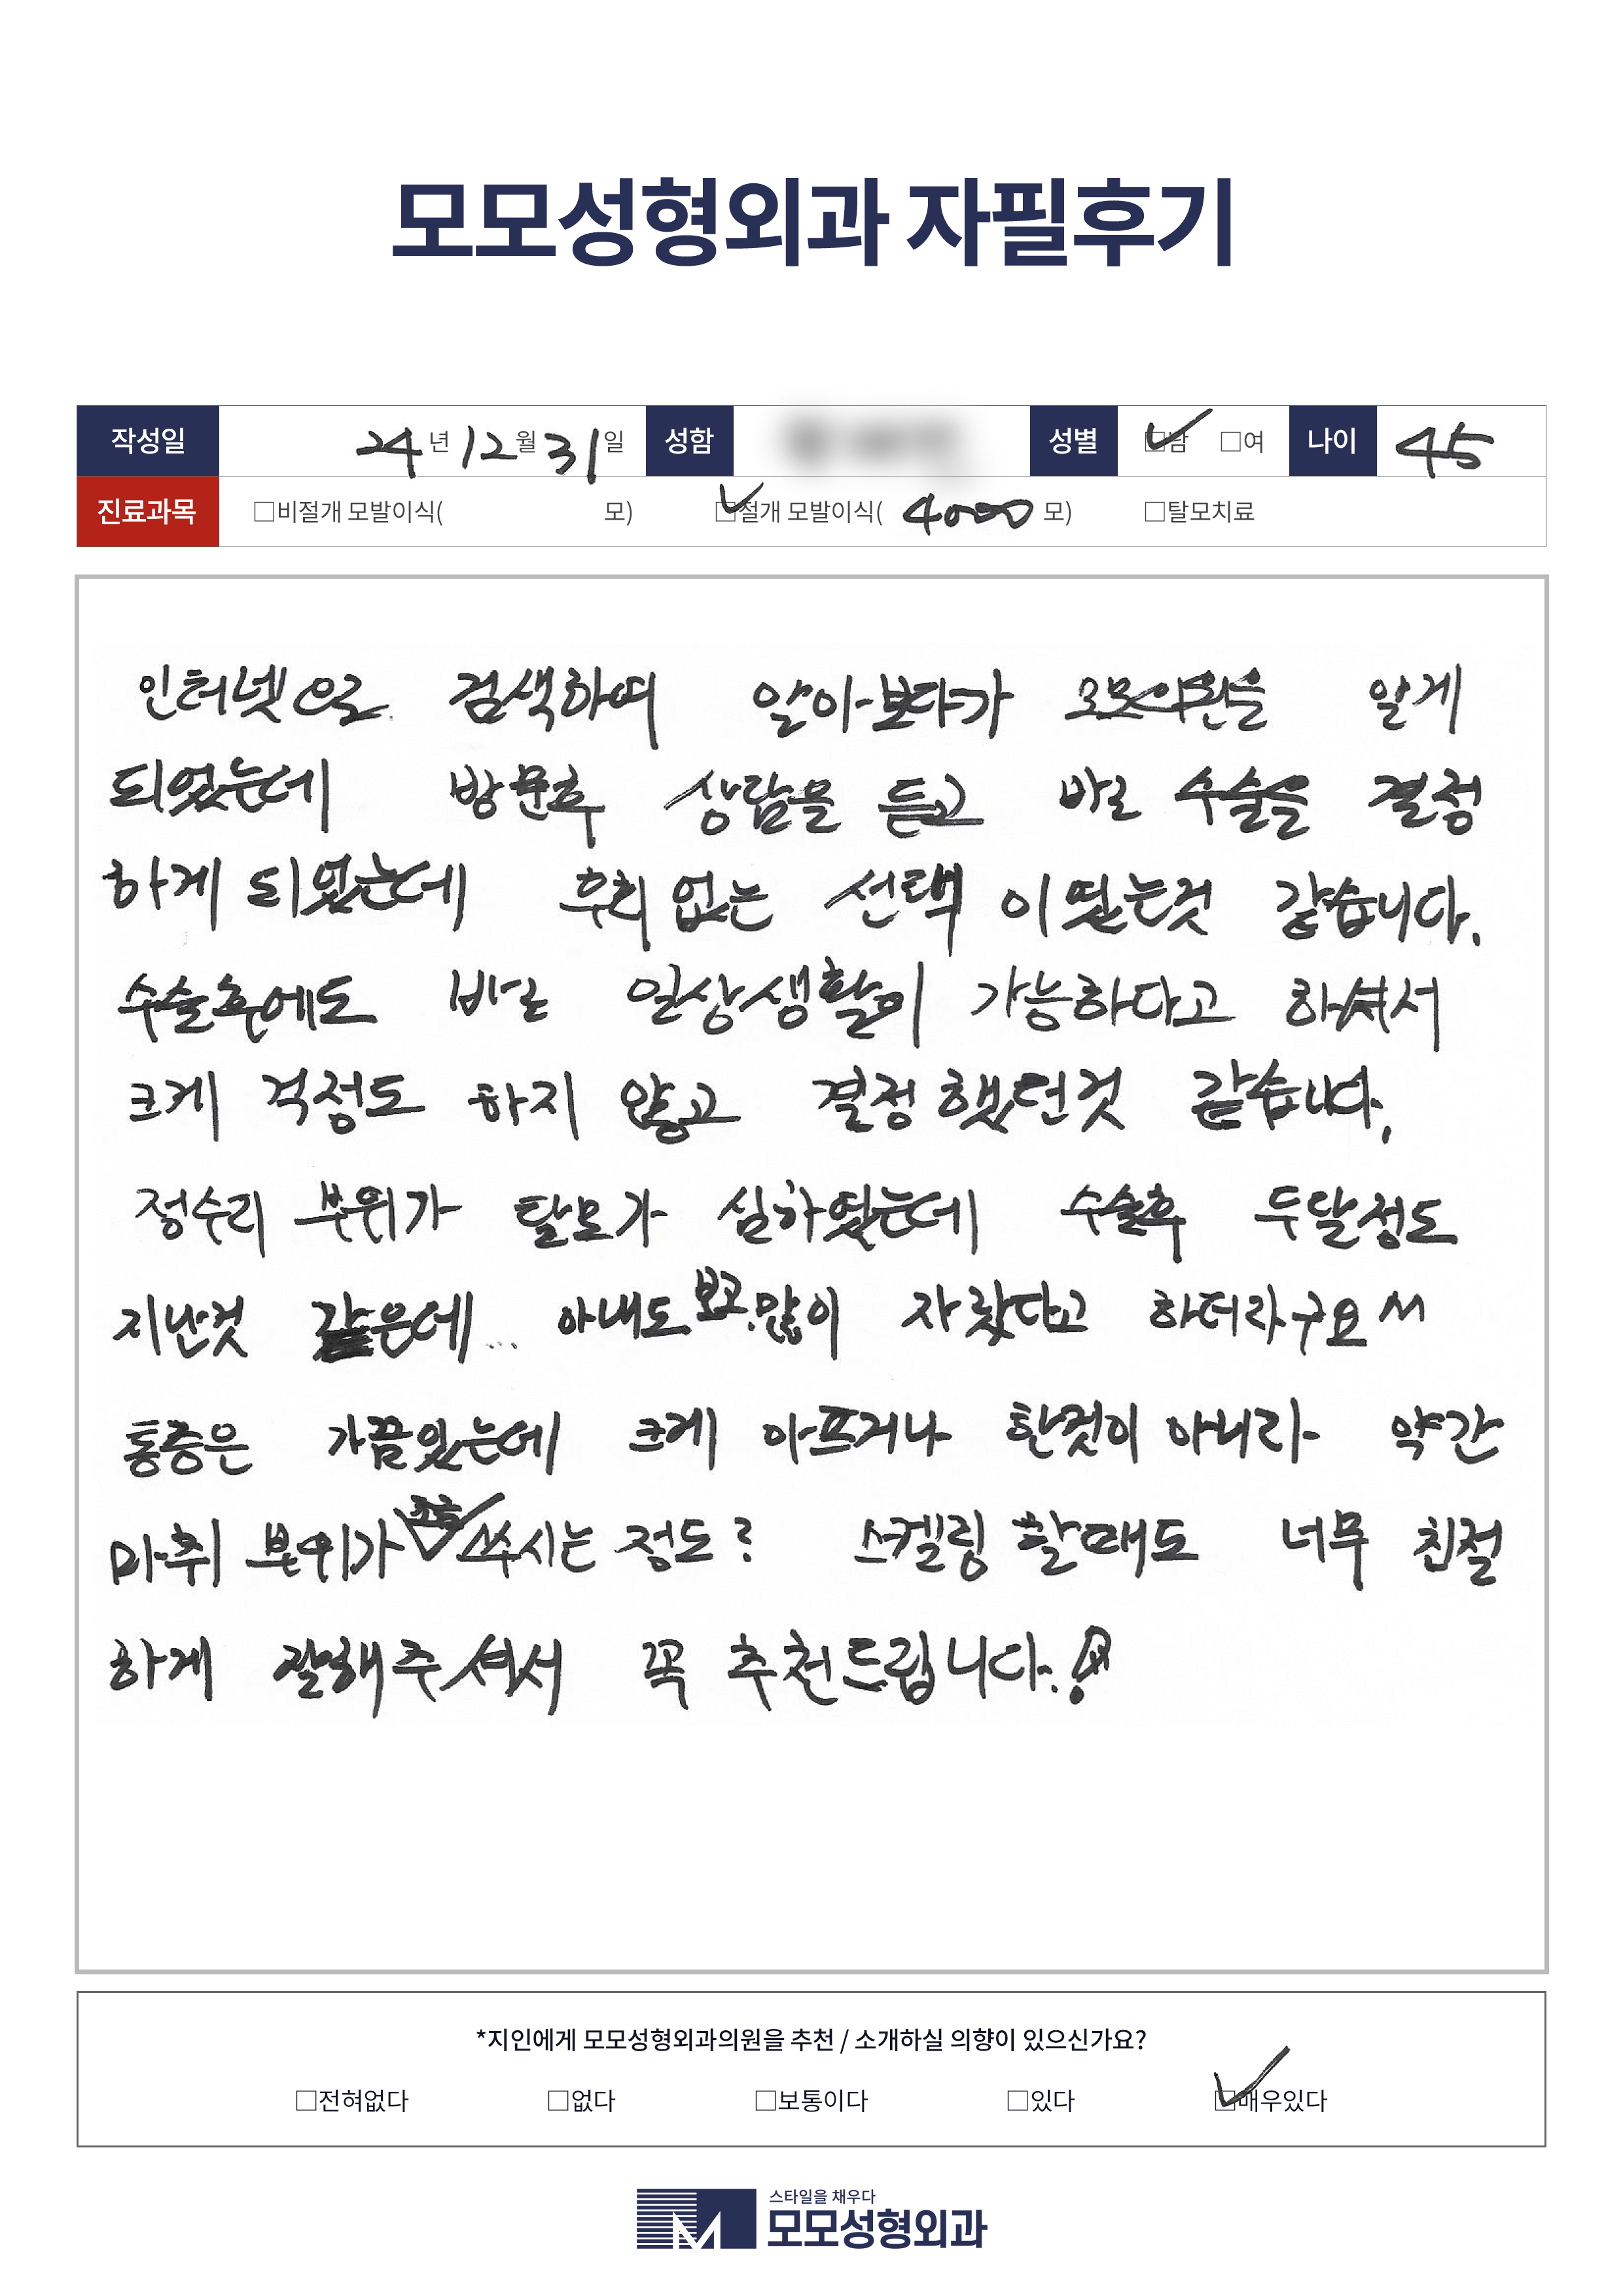 모모성형외과 자필후기
작성일 24년 12월 31일 성함 성별 □남 □여 나이 45
진료과목 □비절개 모발이식( 모) □절개 모발이식( 4000 모) □탈모치료
인터넷으로 검색하여 알아보다가 모모의원을 알게
되었는데 방문후 상담을 듣고 바로 수술을 결정
하게 되었는데 후회 없는 선택 이였는것 같습니다.
수술후에도 바로 일상생활이 가능하다고 하셔서
크게 걱정도 하지 않고 결정 했던것 같습니다.
정수리 부위가 탈모가 심하였는데 수술후 두달정도
지난것 같은데... 아내도 보고 많이 자랐다고 하더라구요 ^^
통증은 가끔있는데 크게 아프거나 한것이 아니라 약간
마취 부위가 조금 쑤시는 정도? 스켈링 할때도 너무 친절
하게 잘해주셔서 꼭 추천드립니다.!
*지인에게 모모성형외과의원을 추천 / 소개하실 의향이 있으신가요?
□전혀없다 □없다 □보통이다 □있다 □매우있다
스타일을 채우다
모모성형외과